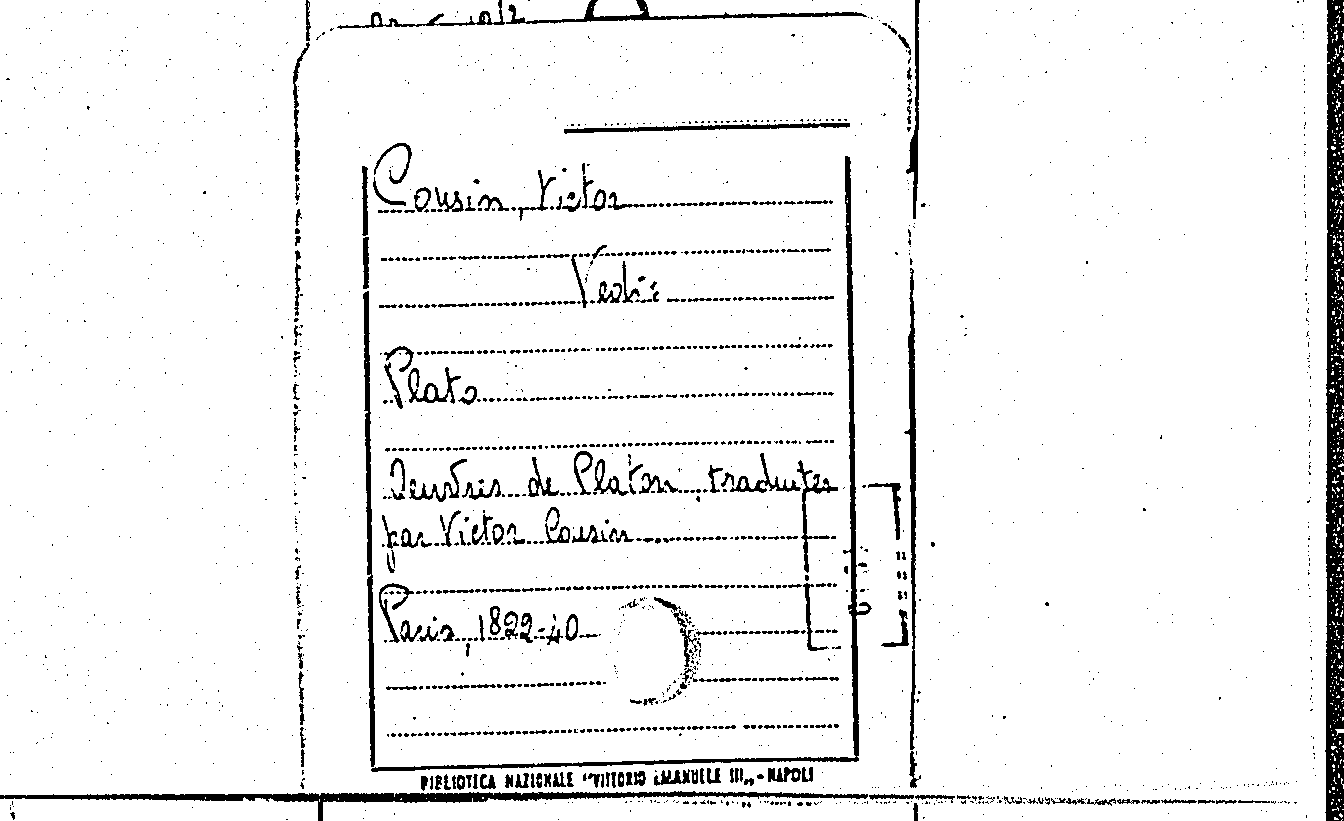 Cousin, Victor
Vedi:
Plato
Oeuvres de Platon, traduites
par Victor Cousin ...
Paris, 1822-40
BIBLIOTECA NAZIONALE "VITTORIO EMANUELE III" - NAPOLI